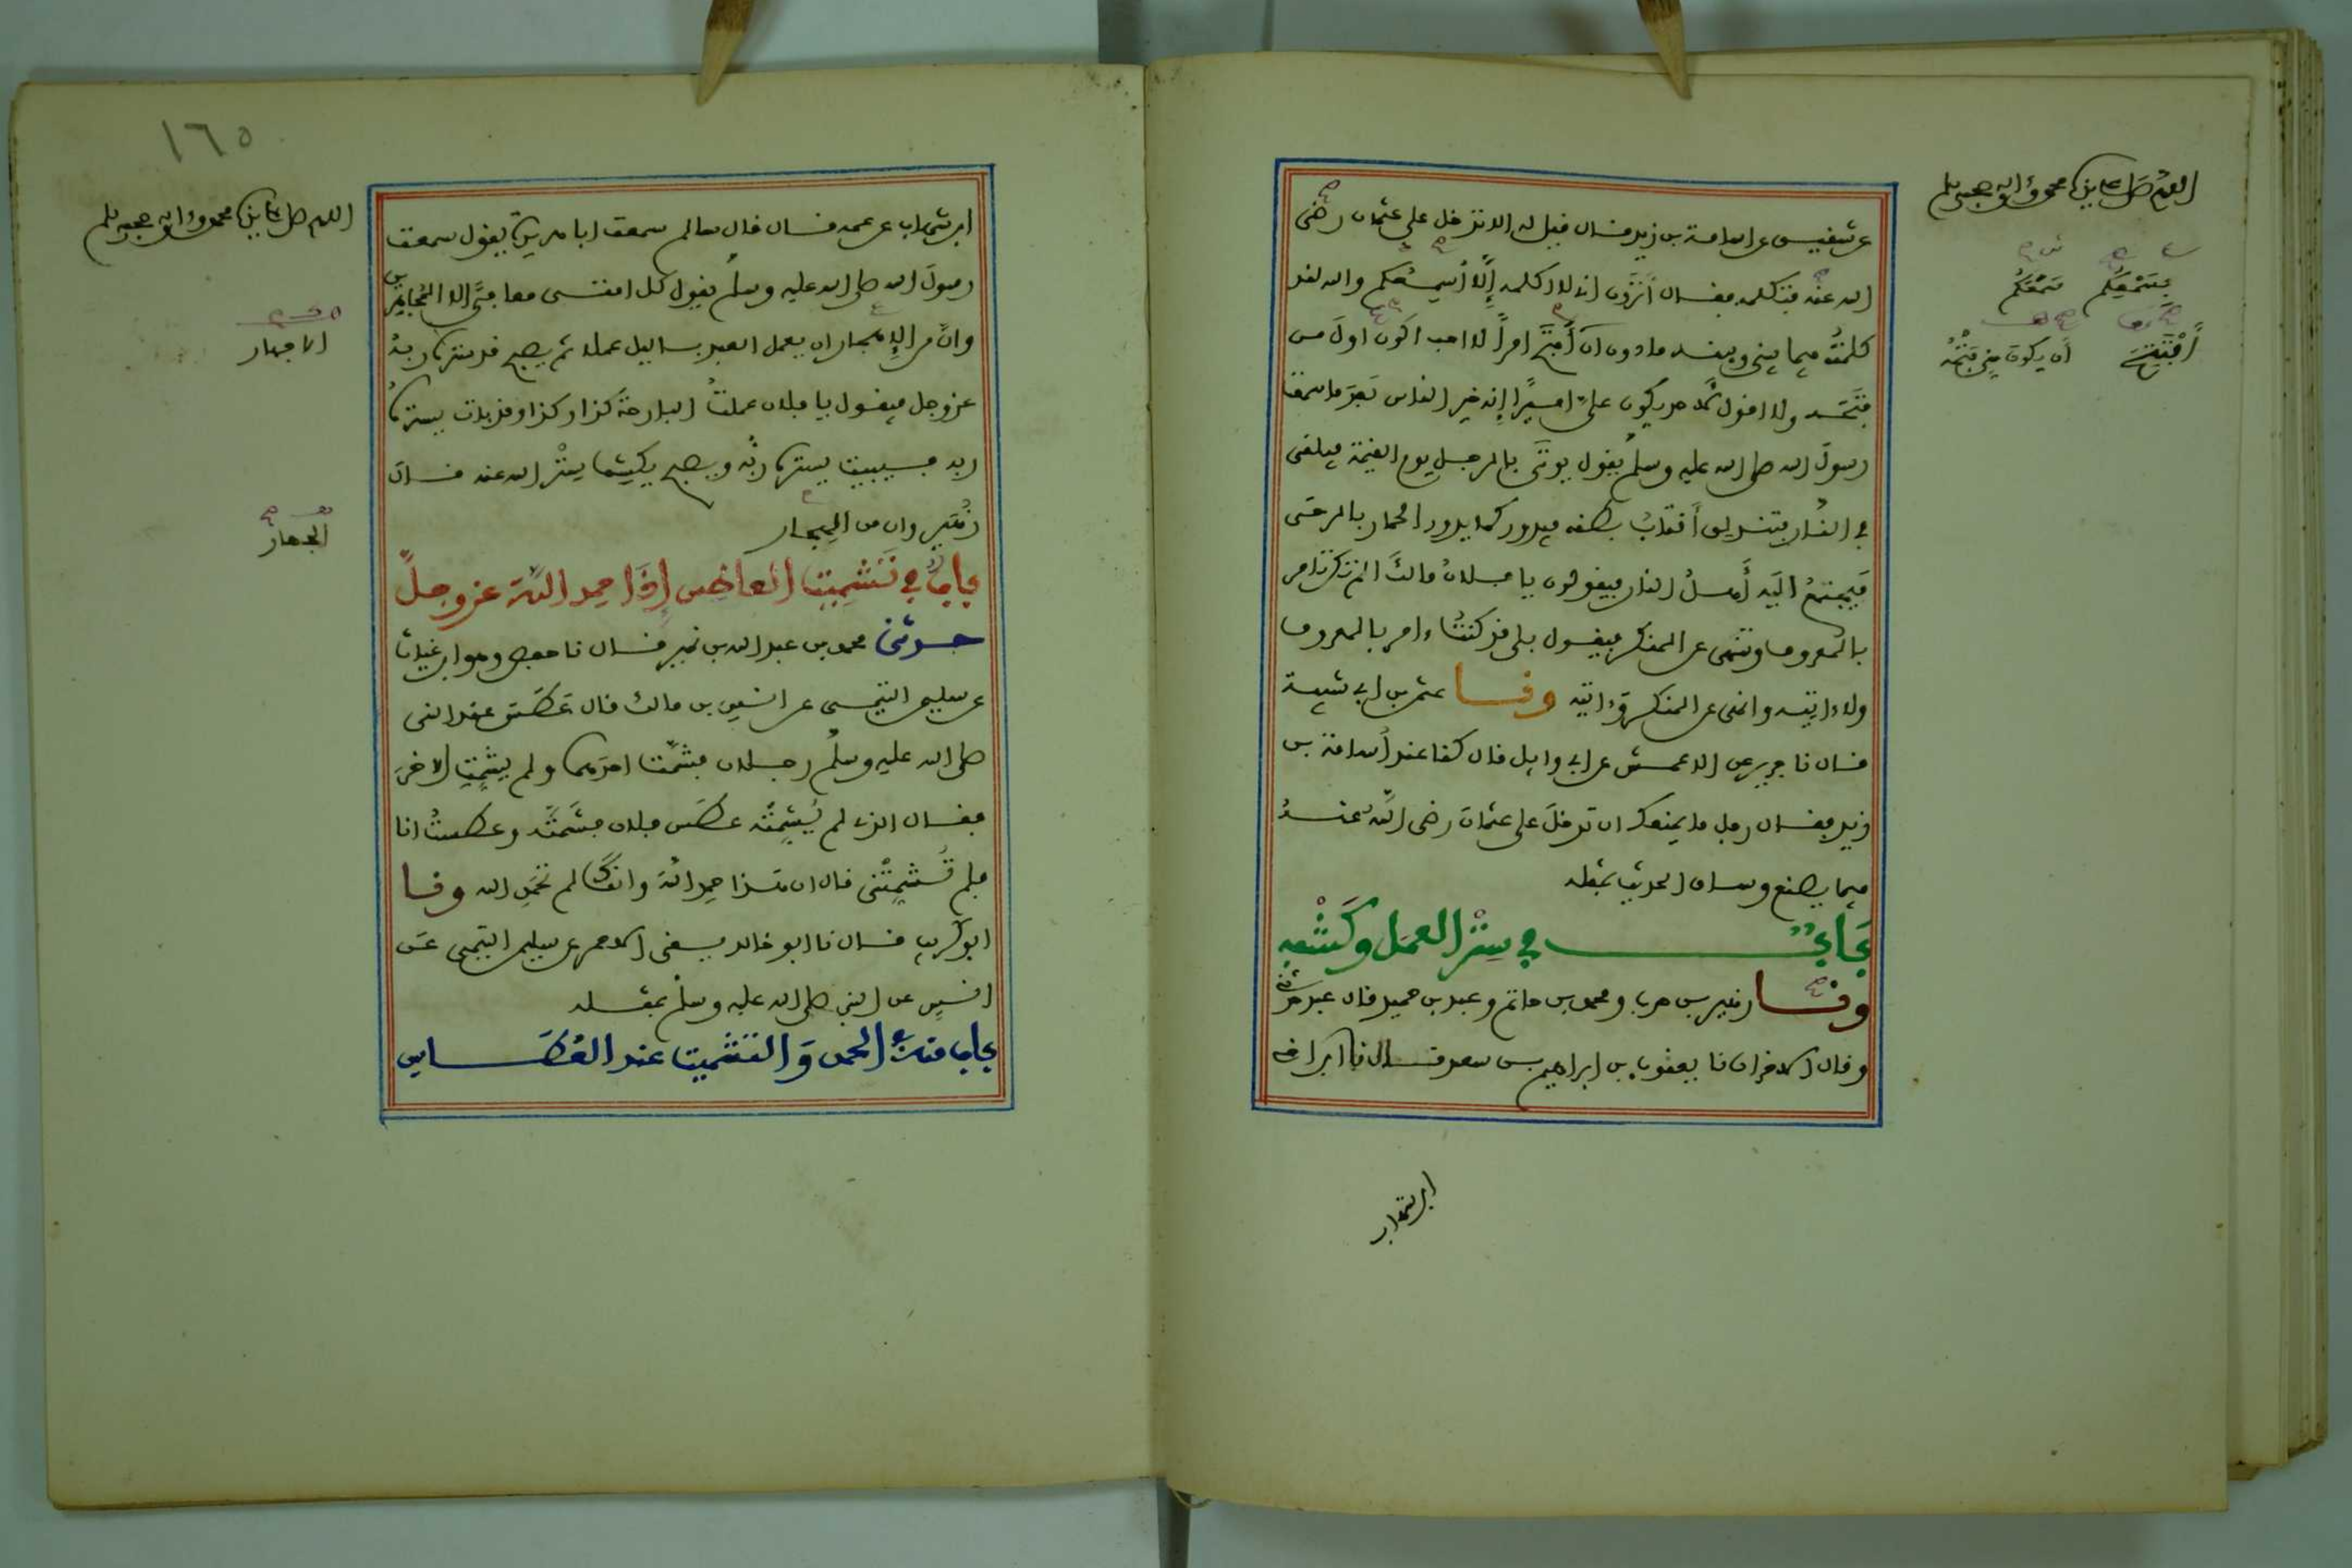 اللهم صل على سيدنا محمد وءاله وصحبه وسلم
عن شقيق عن أسامة بن زيد قال قيل له ألا تدخل على عثمان رضي
الله عنه فتكلمه فقال أترون أني لا أكلمه إلا أسمعكم والله لقد
كلمته فيما بيني وبينه ما دون أن أفتح امرا لا احب اكون اول من
فتحه ولا اقول لأحد يكون علي اميرا إنه خير الناس بعد ما سمعت
رسول الله صلى الله عليه وسلم يقول يوتى بالرجل يوم القيمة فيلقى
في النار فتندلق أقتاب بطنه فيدور كما يدور الحمار بالرحى
فيجتمع اليه أهل النار فيقولون يا فلان مالك الم تكن تامر
بالمعروف وتنهى عن المنكر فيقول بلى قد كنت ءامر بالمعروف
ولا ءاتيه وانهى عن المنكر وءاتيه وثنا عثمن بن ابي شيبة
قال نا جرير عن الاعمش عن ابي وايل قال كنا عند أسامة بن
زيد فقال رجل ما يمنعك ان تدخل على عثمان رضي الله عنه
فيما يصنع وساق الحديث بمثله
باب في ستر العمل وكشفه
وثنا زهير بن حرب ومحمد بن حاتم وعبد بن حميد قال عبد حدثني
وقال الاخران نا يعقوب بن ابراهيم بن سعد قال نا ابن اخي
ابن شهاب
فتسمعكم سمعكم
أفتتح أن يكون من فتحه
١٦٥
اللهم صل على سيدنا محمد وءاله وصحبه وسلم
ابن شهاب عن عمه قال قال سالم سمعت ابا هريرة يقول سمعت
رسول الله صلى الله عليه وسلم يقول كل امتي معافى الا المجاهرين
وان من الإجهار ان يعمل العبد بالليل عملا ثم يصبح قد ستره ربه
عز وجل فيقول يا فلان عملت البارحة كذا وكذا وقد بات يستره
ربه فيبيت يستره ربه ويصبح يكشف ستر الله عنه قال
زهير وان من الهجار
باب في تشميت العاطس إذا حمد الله عز وجل
حدثني محمد بن عبد الله بن نمير قال نا حفص وهو ابن غياث
عن سليمن التيمي عن انس بن مالك قال عطس عند النبي
صلى الله عليه وسلم رجلان فشمت احدهما ولم يشمت الاخر
فقال الذي لم يشمته عطس فلان فشمته وعطست انا
فلم تشمتني قال ان هذا حمد الله وانك لم تحمد الله وثنا
ابو كريب قال نا ابو خالد يعني الاحمر عن سليمن التيمي عن
انس عن النبي صلى الله عليه وسلم بمثله
باب منه الحمد والتشميت عند العطاس
الاجهار
الجهار